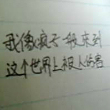 我像疯子一般来到
这个世界上被人伤害